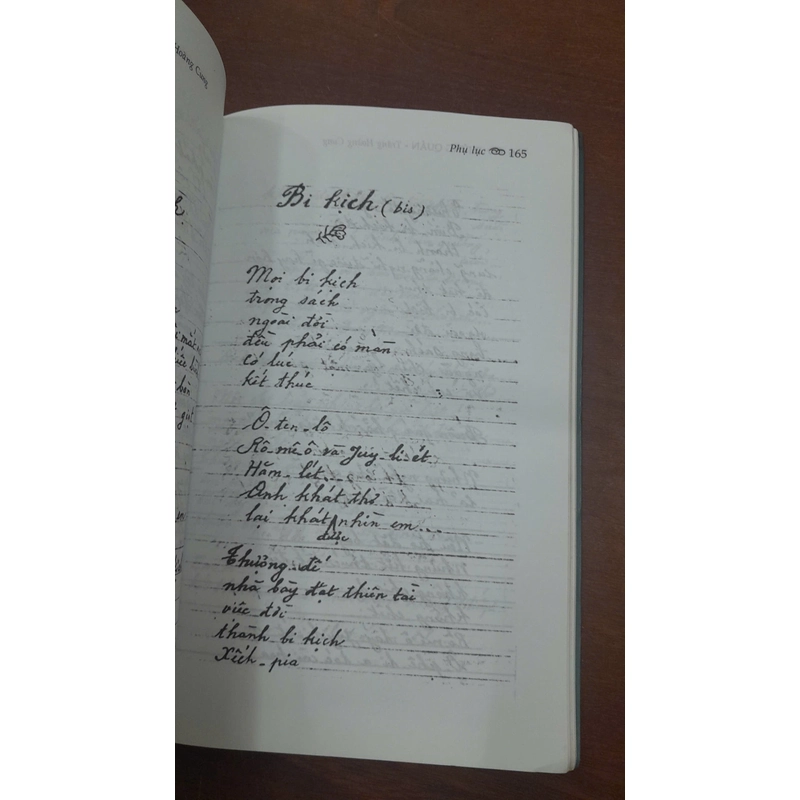 Hoàng Cung
Phụ lục 165
Bi kịch (bis)
Mọi bi kịch
trong sách
ngoài đời
đều phải có màn
có lúc
kết thúc
Ô-ten-lô
Rô-mê-ô và Juy-li-ét
Hăm-lét...
Anh khát thở
lại khát được nhìn em...
Thượng-đế
nhà bày đạt thiên tài
việc đời
thành bi kịch
Xếch-pia